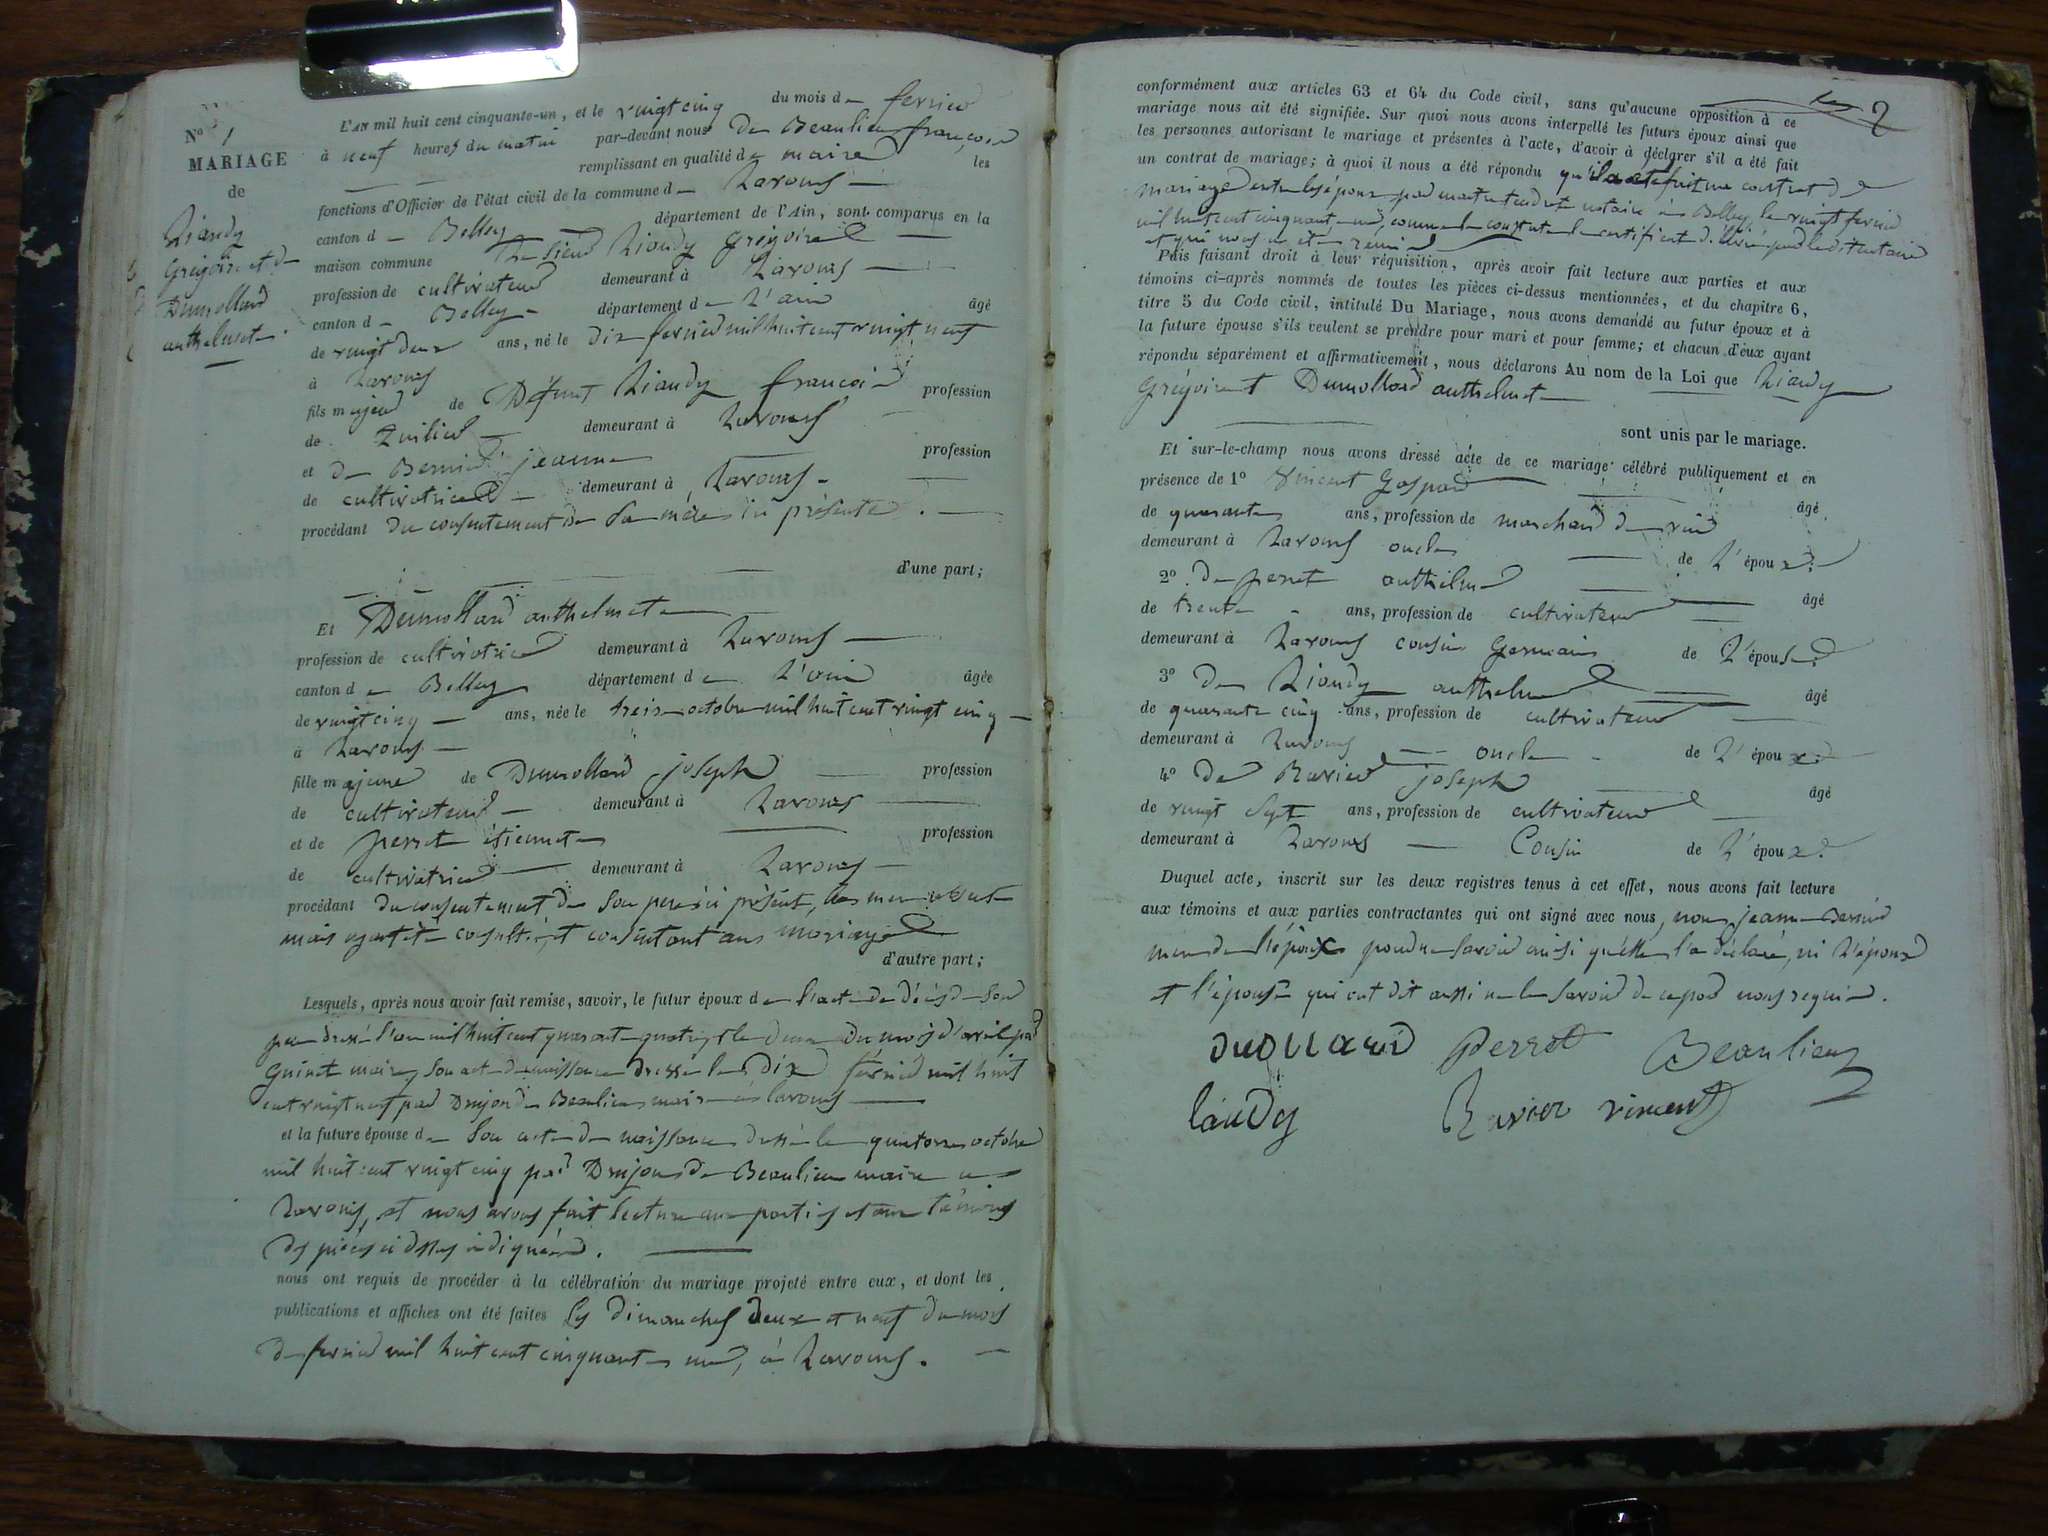 N° 1
MARIAGE
de
Liaudy
Grégoire et de
Dumollard
anthelmette.
L'AN mil huit cent cinquante-un, et le vingt cinq du mois de fevrier
à neuf heures du matin par-devant nous De Beaulieu françois
remplissant en qualité de maire les
fonctions d'Officier de l'état civil de la commune de Lavours
canton de Belley département de l'Ain, sont comparus en la
maison commune Le sieur Liaudy Grégoire
profession de cultivateur demeurant à Lavours
canton de Belley département de L'ain âgé
de vingt deux ans, né le dix fevrier mil huit cent vingt neuf
à Lavours
fils majeur de Défunt Liaudy françois profession
de demeurant à Lavours
et de Bernier jeanne profession
de cultivatrice demeurant à Lavours
procédant du consentement de sa mère ici présente.
d'une part;
Et Dumollard anthelmette
profession de cultivatrice demeurant à Lavours
canton de Belley département de L'ain âgée
de vingt cinq ans, née le treize octobre mil huit cent vingt cinq
à Lavours
fille majeure de Dumollard joseph profession
de cultivateur demeurant à Lavours
et de perret étiennette profession
de cultivatrice demeurant à Lavours
procédant du consentement de son père ici présent, la mere absente
mais ayant été consultée, et consentant au mariage
d'autre part;
Lesquels, après nous avoir fait remise, savoir, le futur époux de l'acte de décès de son
père dressé l'an mil huit cent quarante quatre et le deux du mois d'avril par
Guinet maire, son acte de naissance dressé le dix fevrier mil huit
cent vingt neuf par Dujon de Beaulieu maire à lavours
et la future épouse de son acte de naissance dressé le quatorze octobre
mil huit cent vingt cinq par Dujon de Beaulieu maire a
Lavours, et nous avons fait lecture aux parties et aux témoins
des pièces ci dessus indiquées.
nous ont requis de procéder à la célébration du mariage projeté entre eux, et dont les
publications et affiches ont été faites les dimanches deux et neuf du mois
de fevrier mil huit cent cinquante un, à Lavours.
2
conformément aux articles 63 et 64 du Code civil, sans qu'aucune opposition à ce
mariage nous ait été signifiée. Sur quoi nous avons interpellé les futurs époux ainsi que
les personnes autorisant le mariage et présentes à l'acte, d'avoir à déclarer s'il a été fait
un contrat de mariage; à quoi il nous a été répondu qu'il a été fait un contrat de
mariage entre les époux par notaire à Belley le vingt fevrier
mil huit cent cinquante un, comme le constate le certificat délivré par ledit notaire
et qui nous a été remis
Puis faisant droit à leur réquisition, après avoir fait lecture aux parties et aux
témoins ci-après nommés de toutes les pièces ci-dessus mentionnées, et du chapitre 6,
titre 5 du Code civil, intitulé Du Mariage, nous avons demandé au futur époux et à
la future épouse s'ils veulent se prendre pour mari et pour femme; et chacun d'eux ayant
répondu séparément et affirmativement, nous déclarons Au nom de la Loi que Liaudy
Grégoire et Dumollard anthelmette
sont unis par le mariage.
Et sur-le-champ nous avons dressé acte de ce mariage célébré publiquement et en
présence de 1° Vincent Gaspard âgé
de quarante ans, profession de marchand de vin
demeurant à Lavours oncle de L'époux
2° De perret anthelme âgé
de trente ans, profession de cultivateur
demeurant à Lavours cousin Germain de L'épouse
3° De Liaudy anthelme âgé
de quarante cinq ans, profession de cultivateur
demeurant à Lavours oncle de L'époux
4° De Ravier joseph âgé
de vingt sept ans, profession de cultivateur
demeurant à Lavours Cousin de L'époux.
Duquel acte, inscrit sur les deux registres tenus à cet effet, nous avons fait lecture
aux témoins et aux parties contractantes qui ont signé avec nous, non jeanne Bernier
mere de l'époux pour ne savoir ainsi qu'elle l'a déclaré, ni L'époux
et l'épouse qui ont dit aussi ne le savoir de ce par nous requis.
Perret Beaulieu
laudy Ravier vincent